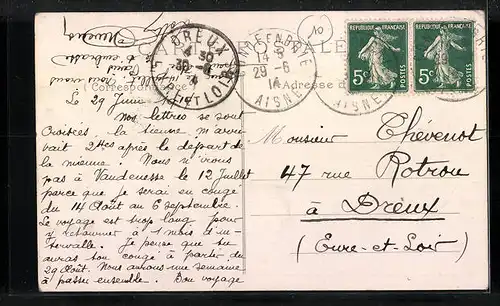 DREUX
4 30
30 - 6
14
EURE-ET-LOIR
EN BRIE
14
29 - 6
14
AISNE
AISNE
10
RÉPUBLIQUE FRANÇAISE
5c
POSTES
RÉPUBLIQUE FRANÇAISE
5c
POSTES
Correspondance
Adresse
Le 29 Juin
Nos lettres se sont
croisées, la tienne m'arri
vait 2 hres après le départ de
la mienne. Nous n'irons
pas à Vaudenesse le 12 Juillet
parce que je serai en congé
du 14 Août au 6 septembre.
Le voyage est trop long pour
y retourner à 1 mois d'in-
tervalle. Je pense que tu
auras ton congé à partir du
29 Août. Nous aurons une semaine
à passer ensemble. Bon voyage
Monsieur Thévenot
47 rue Rotrou
à Dreux
(Eure-et-Loir)